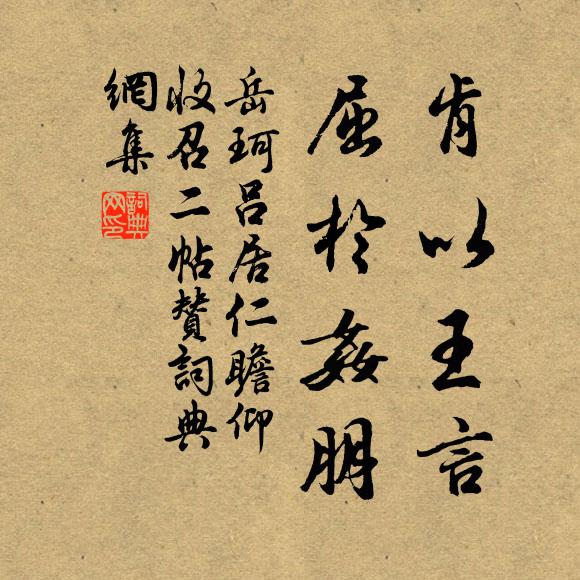 肯以王言
屈於姦朋
岳珂呂居仁瞻仰
收召二帖贊詞典
網集
詞典
网印